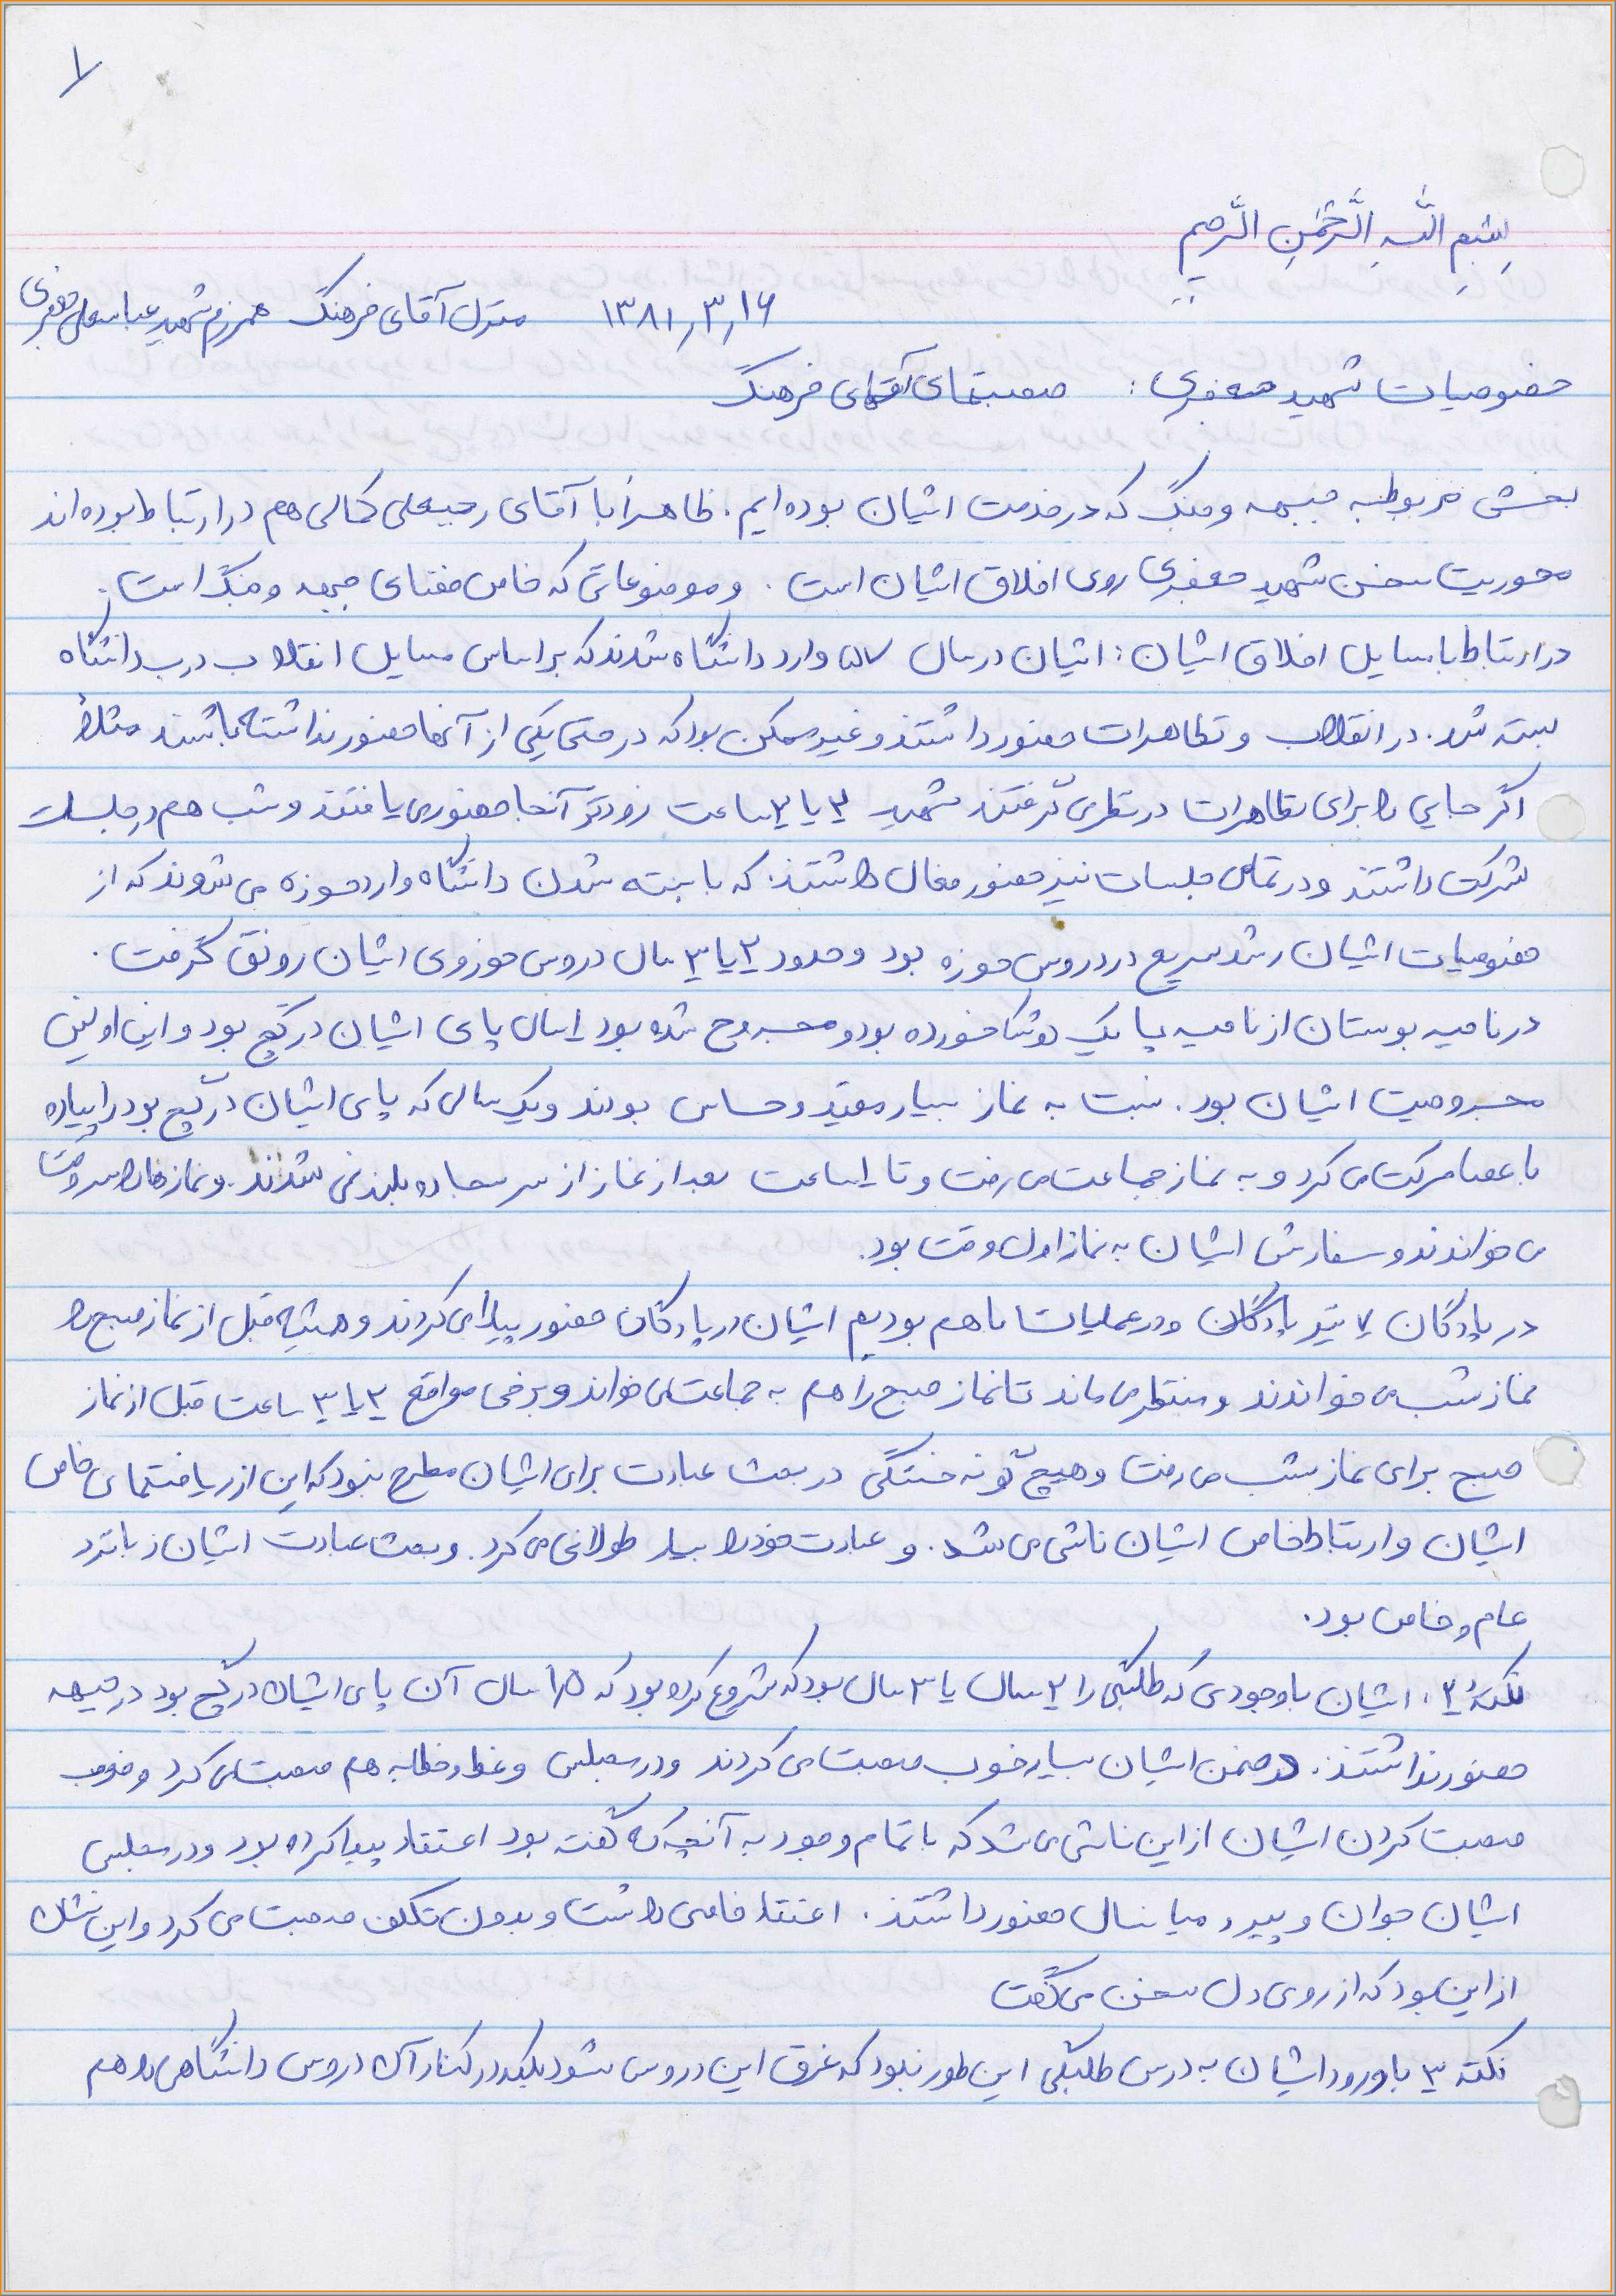 ۱
بِسْمِ اللَّهِ الرَّحْمَنِ الرَّحِيمِ
۱۳۸۱٫۳٫۱۶ منزل آقای فرهنگ همرزم شهید عباسعلی جعفری
خصوصیات شهید جعفری: صحبتهای آقای فرهنگ
بخشی مربوط به جبهه و جنگ که در خدمت ایشان بوده ایم. ظاهراً با آقای رجبعلی کمالی هم در ارتباط بوده اند
محوریت سخن شهید جعفری روی اخلاق ایشان است. و موضوعاتی که خاص فضای جبهه و جنگ است.
در ارتباط با مسایل اخلاق ایشان: ایشان در سال ۵۷ وارد دانشگاه شدند که براساس مسایل انقلاب درب دانشگاه
بسته شد. در انقلاب و تظاهرات حضور داشتند و غیرممکن بود که در حتی یکی از آنها حضور نداشته باشند مثلاً
اگر جایی را برای تظاهرات در نظر می گرفتند شهید ۲ یا ۳ ساعت زودتر آنجا حضور می یافتند و شب هم در جلسات
شرکت داشتند و در تمامی جلسات نیز حضور فعال داشتند. که با بسته شدن دانشگاه وارد حوزه می شوند که از
خصوصیات ایشان رشد سریع در دروس حوزه بود و حدود ۲ یا ۳ سال دروس حوزوی ایشان رونق گرفت.
در ناحیه بوستان از ناحیه پا یک خورده بود و مجروح شده بود ۱سال پای ایشان در گچ بود و این اولین
مجروحیت ایشان بود. نسبت به نماز بسیار مقید و حساس بودند و یک سالی که پای ایشان در گچ بود را پیاده
با عصا حرکت می کرد و به نماز جماعت می رفت و تا ۱ساعت بعد از نماز از سر سجاده بلند نمی شدند. و نمازها را سر وقت
می خواندند و سفارش ایشان به نماز اول وقت بود.
در پادگان ۷ تیر پادگان و در عملیات با هم بودیم ایشان در پادگان حضور پیدا می کردند و همیشه قبل از نماز صبح را
نماز شب می خواندند و منتظر می ماند تا نماز صبح را هم به جماعت می خواند و برخی مواقع ۲ یا ۳ ساعت قبل از نماز
صبح برای نماز شب می رفت و هیچ گونه خستگی در بحث عبادت برای ایشان مطرح نبود که این از ریاضتهای خاص
ایشان و ارتباط خاص ایشان ناشی می شد. و عبادت خود را بسیار طولانی می کرد. و بحث عبادت ایشان زبانزد
عام و خاص بود.
نکته ۲: ایشان با وجودی که طلبگی را ۲ سال یا ۳ سال بود که شروع کرده بود که ۱/۵ سال آن پای ایشان در گچ بود در جبهه
حضور نداشتند. در ضمن ایشان بسیار خوب صحبت می کردند و در مجلس وعظ و خطابه هم صحبت می کرد و خوب
صحبت کردن ایشان از این ناشی می شد که با تمام وجود به آنچه که گفته بود اعتقاد پیدا کرده بود و در مجلس
ایشان جوان و پیر و میانسال حضور داشتند. اعتقاد خاصی داشت و بدون تکلف صحبت می کرد و این نشان
از این بود که از روی دل سخن می گفت
نکته ۳ با ورود ایشان به درس طلبگی این طور نبود که غرق این دروس شود بلکه در کنار آن دروس دانشگاهی را هم